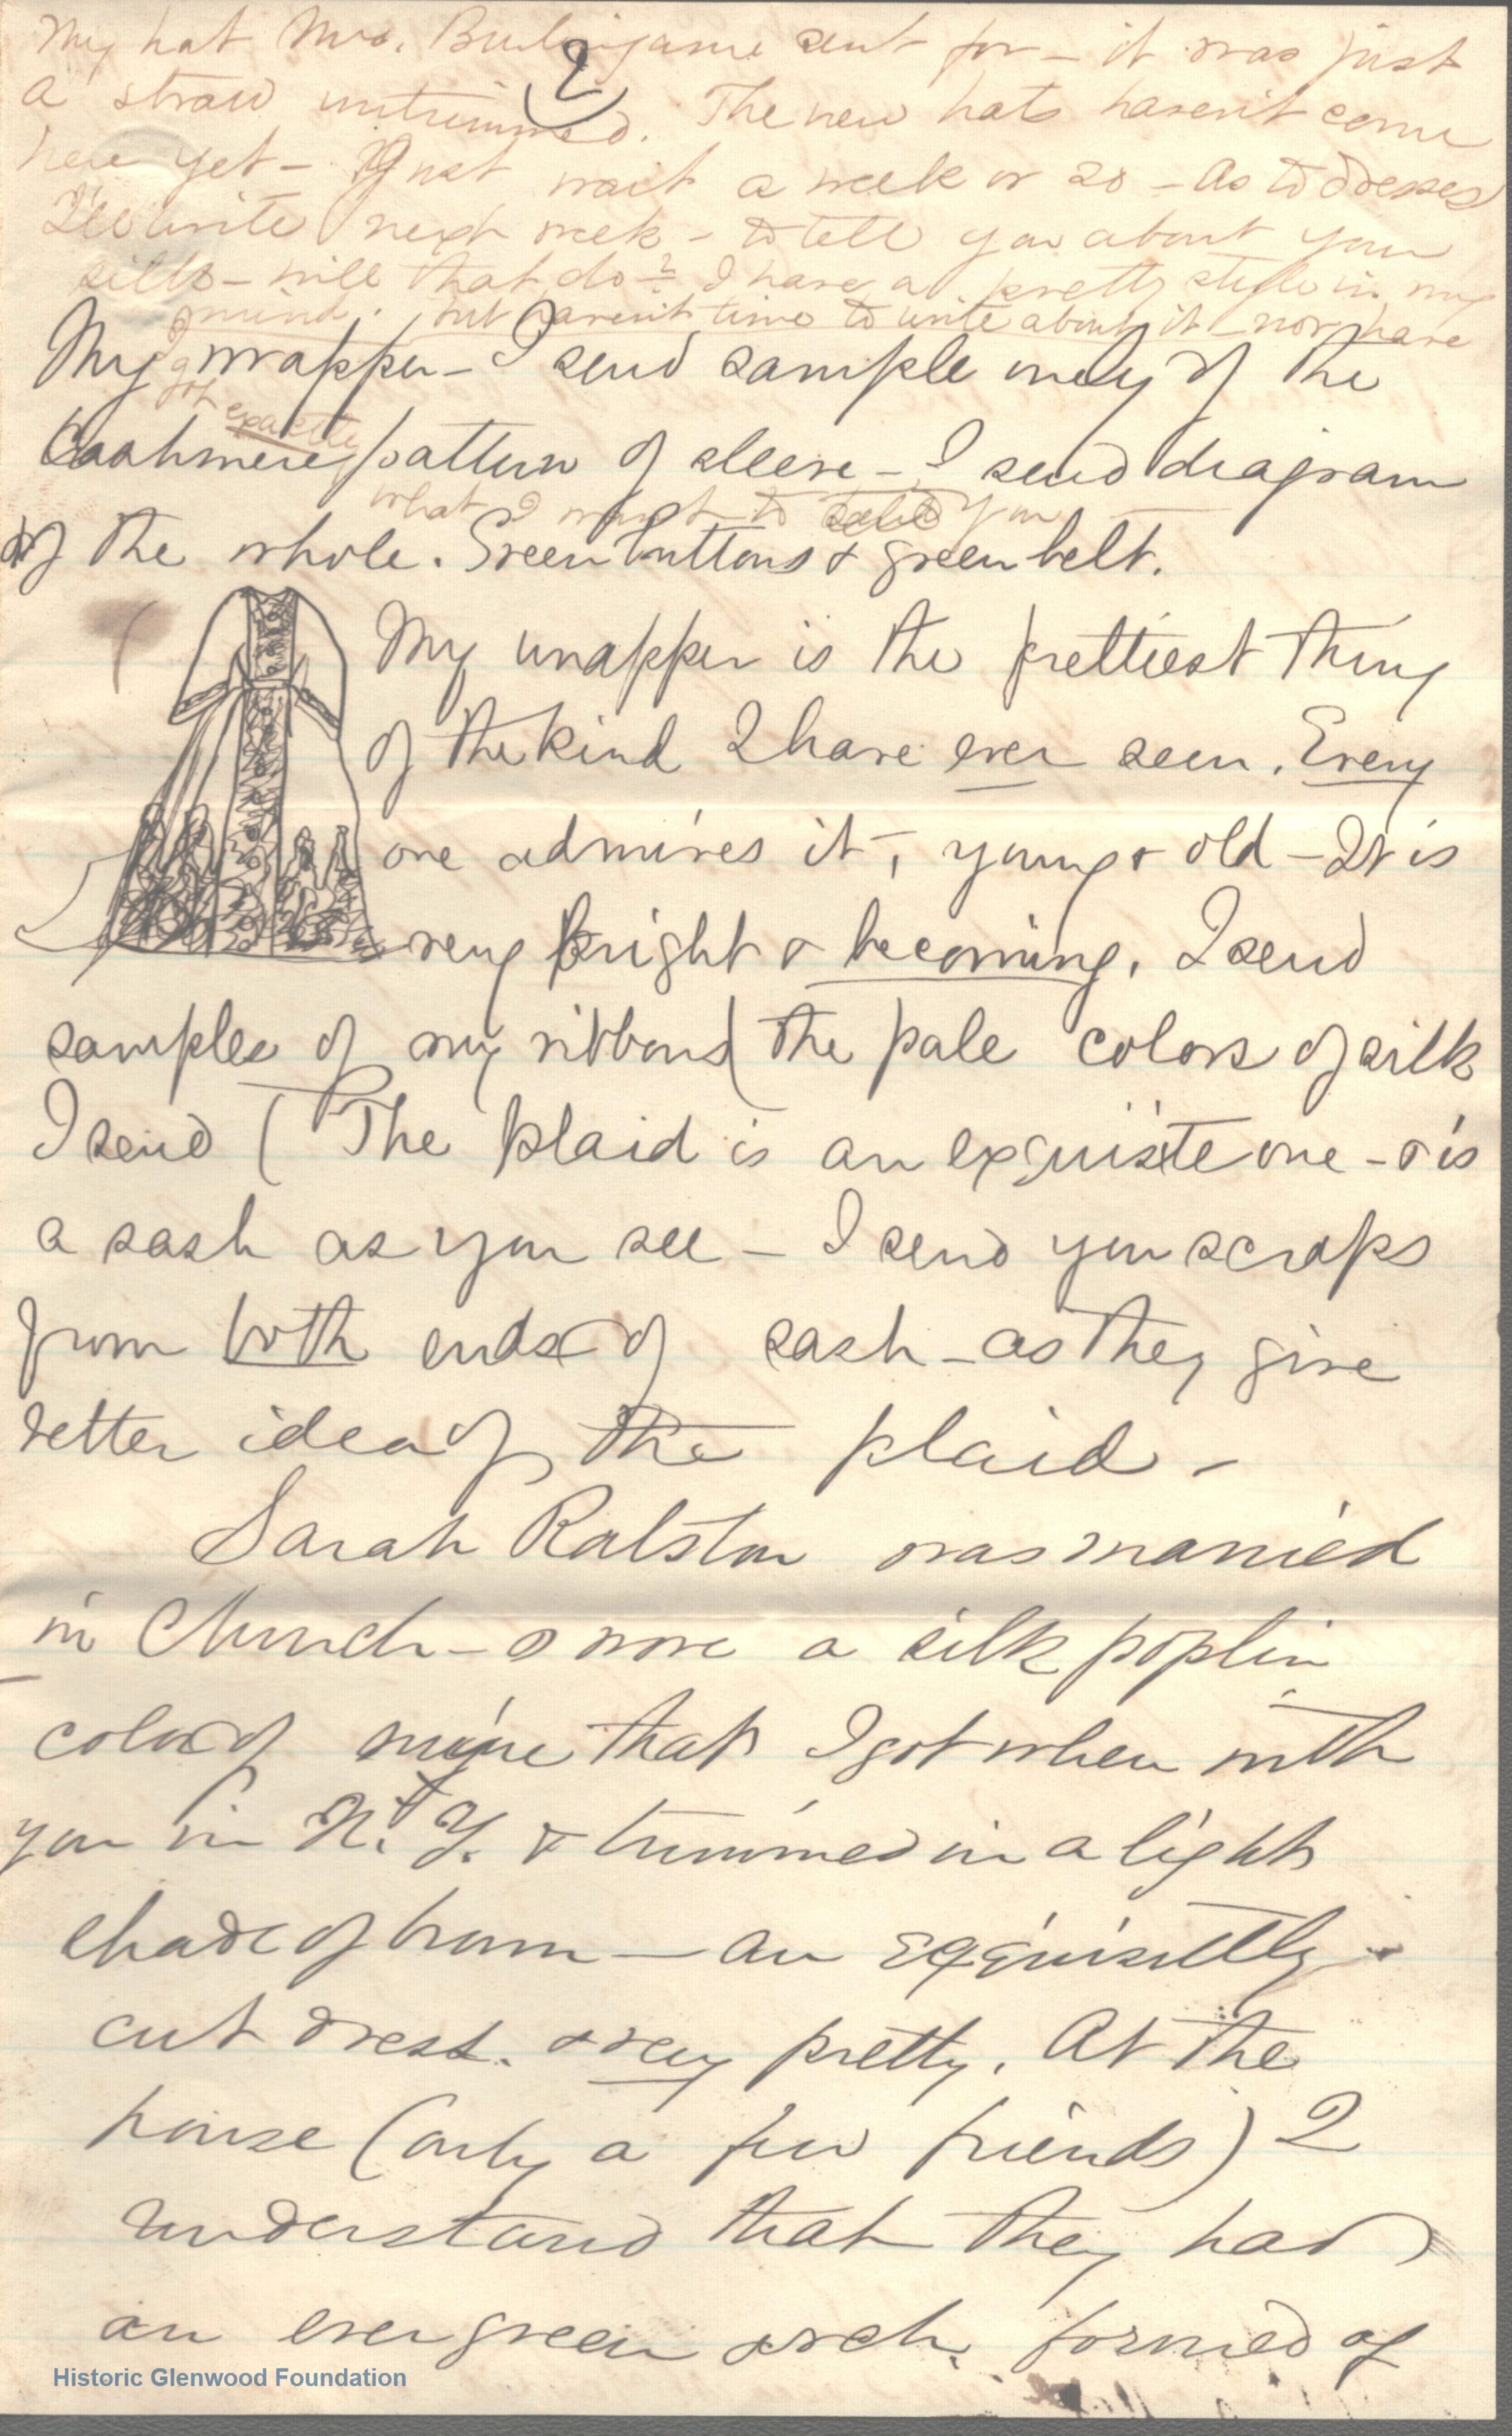 2
My hat Mrs. Burlingame sent for – it was just
a straw untrimmed. The new hats haven't come
here yet – Just wait a week or so – As to dresses
I'll write next week – to tell you about your
silks – will that do? I have a pretty style in my
mind. but haven't time to write about it – nor have
I got exactly
what I want to send you
My wrapper – I send sample only of the
Cashmere pattern of sleeve – I send diagram
of the whole. Green buttons & green belt.
My wrapper is the prettiest thing
of the kind I have ever seen. Every
one admires it, young & old – It is
very bright & becoming. I send
samples of my ribbons (the pale colors of silk
I send ( The plaid is an exquisite one – & is
a sash as you see – I send you scraps
from both ends of sash – as they give
better idea of the plaid –
Sarah Ralston was married
in Church – & wore a silk poplin
color of mine that I got when with
you in N. Y. & trimmed in a light
shade of brown — an exquisitely
cut dress. & very pretty. At the
house (only a few friends) I
understand that they had
an evergreen arch, formed of
Historic Glenwood Foundation